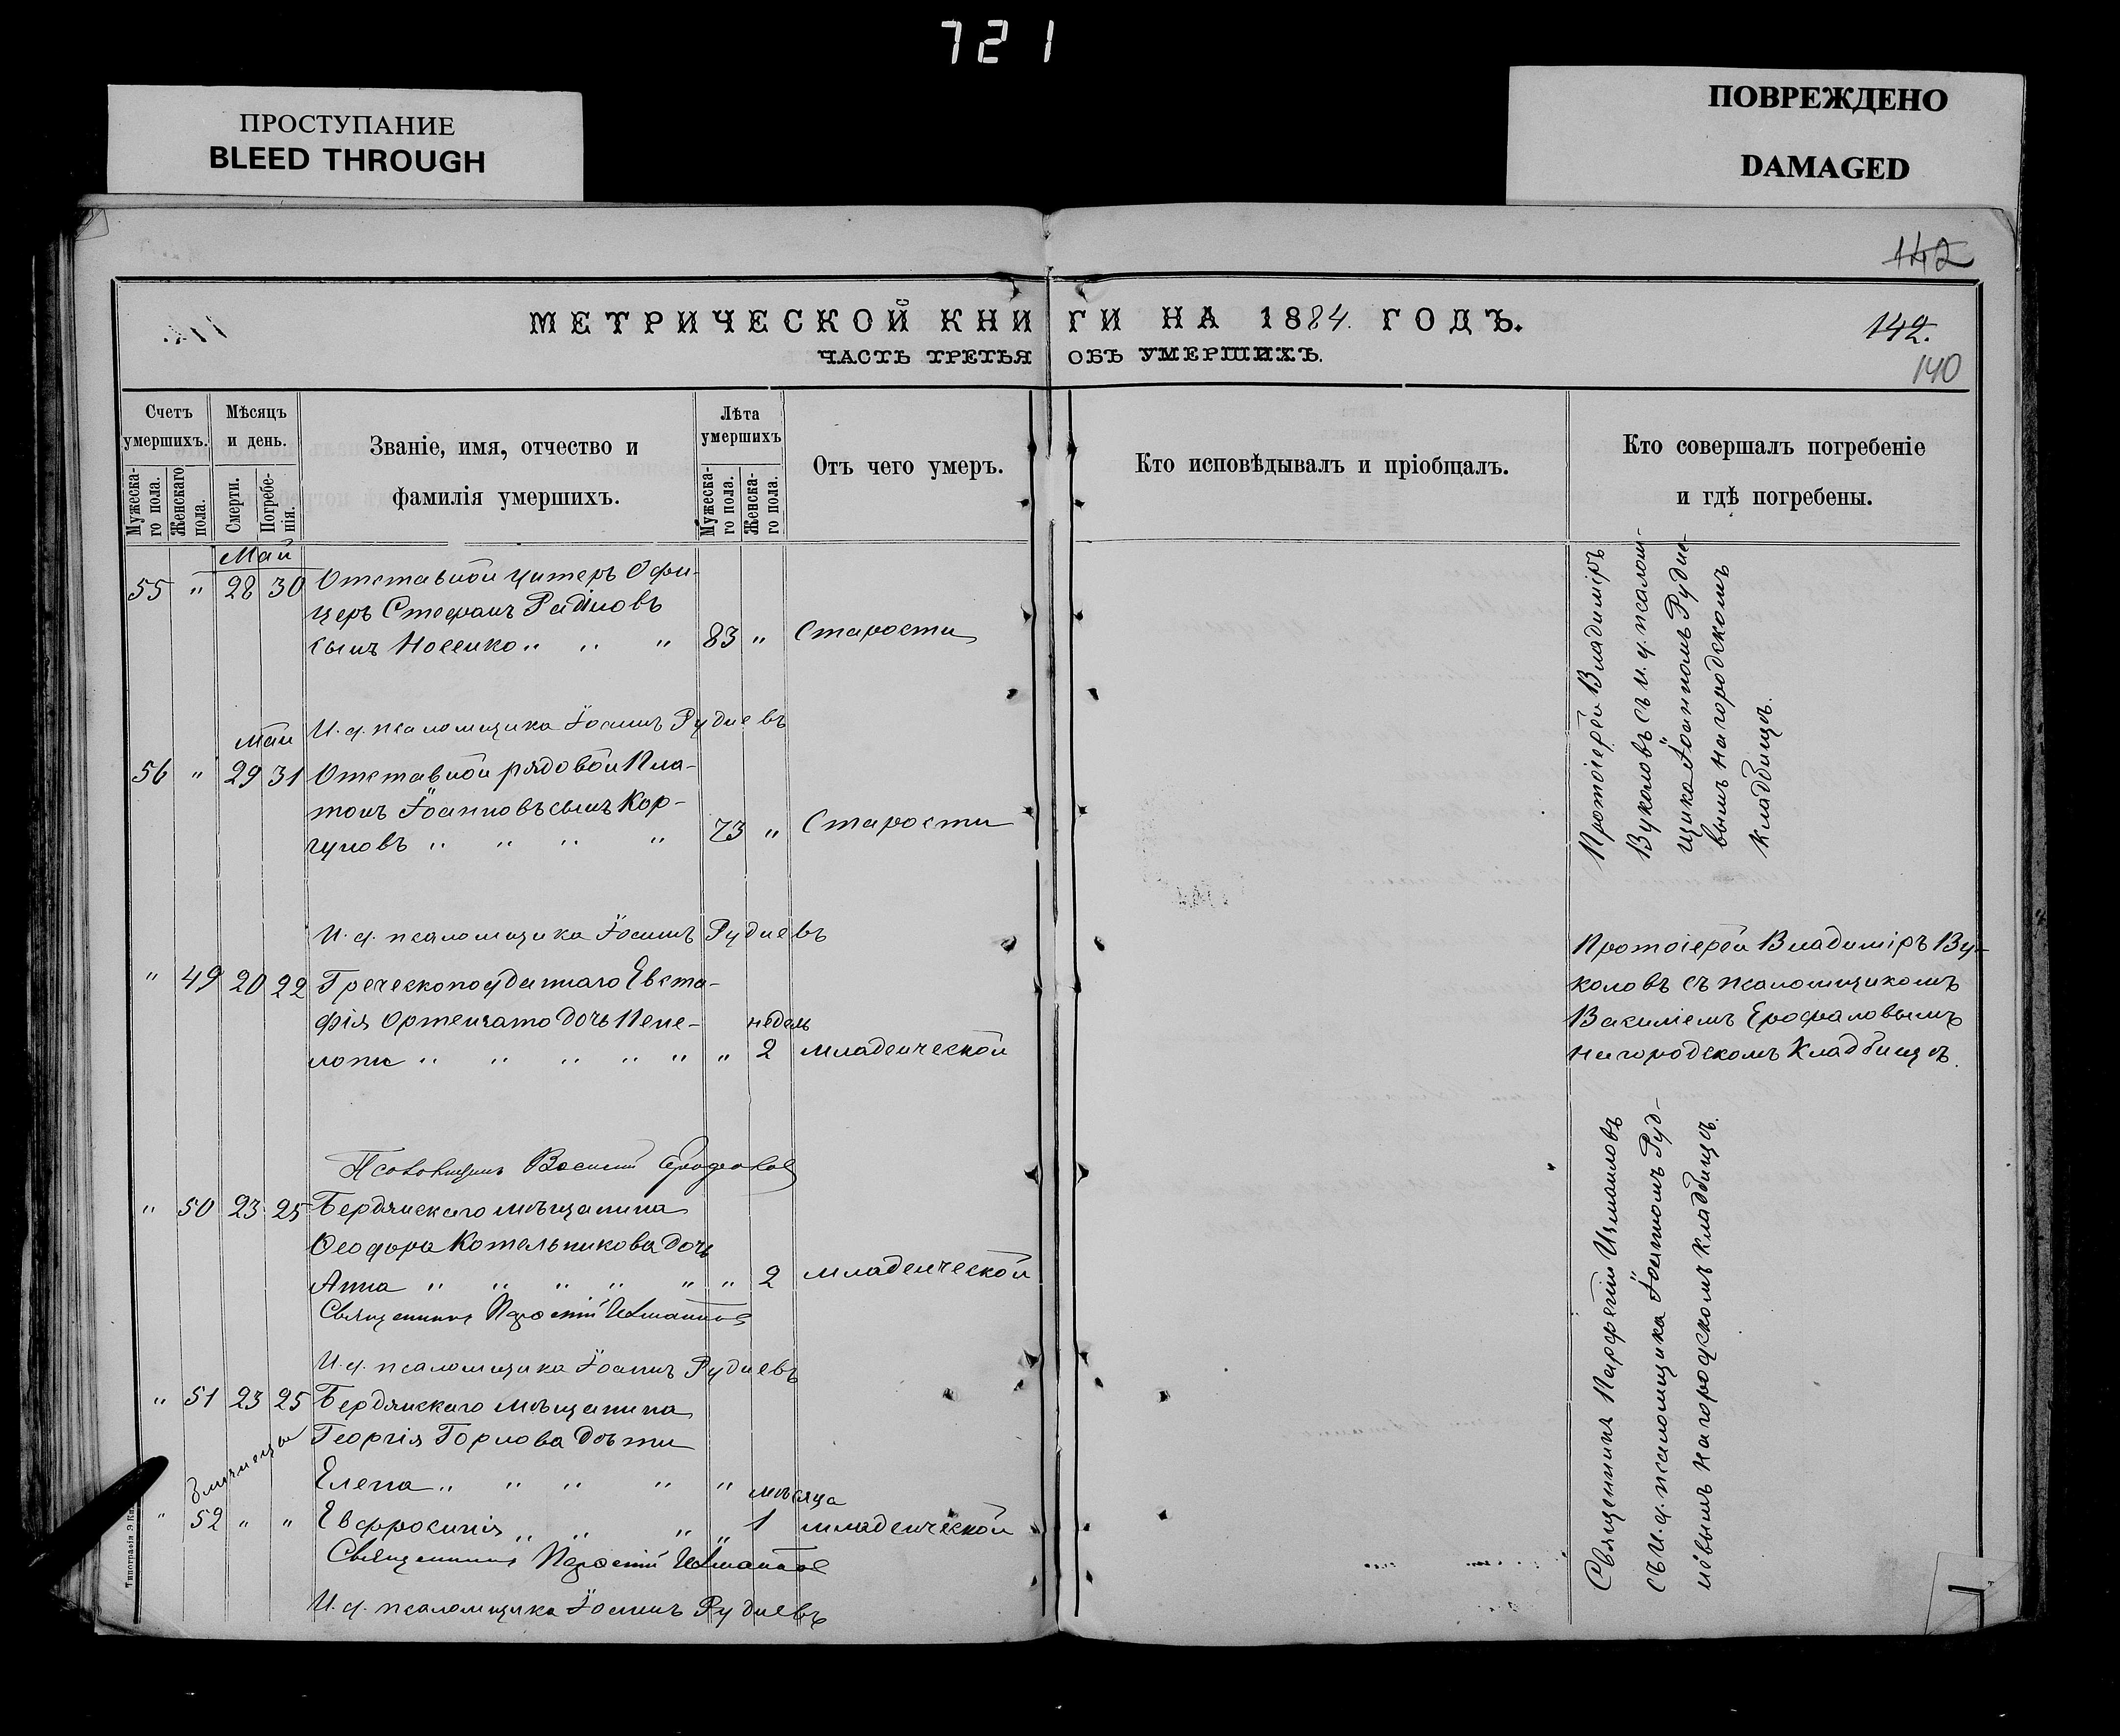 721
ПРОСТУПАНИЕ
BLEED THROUGH
ПОВРЕЖДЕНО
DAMAGED
142
МЕТРИЧЕСКОЙ КНИГИ НА 1884. ГОДЪ.
142.
ЧАСТЬ ТРЕТЬЯ ОБЪ УМЕРШИХЪ.
140
Счетъ умершихъ.
Мужеска-го пола.
Женскаго пола.
Мѣсяцъ и день.
Смерти.
Погребе-нія.
Званіе, имя, отчество и
фамилія умершихъ.
Лѣта умершихъ
Мужеска-го пола.
Женска-го пола.
Отъ чего умеръ.
Кто исповѣдывалъ и пріобщалъ.
Кто совершалъ погребеніе
и гдѣ погребены.
Май
55 " 28 30 Отставной унтеръ Офи-
церъ Стефанъ
сынъ Носенко " " " 83 " Старости
И. д. псаломщика Іоаннъ Рудневъ
Май
56 " 29 31 Отставной рядовой Пла-
тонъ Іоанновъ сынъ Кор-
гуновъ " " " " 73 " Старости
Протоіерей Владиміръ
Вуколовъ съ и. д. псалом-
щика Іоанномъ Рудне-
вымъ на городскомъ
кладбищѣ.
И. д. псаломщика Іоаннъ Рудневъ
" 49 20 22 Греческоподданнаго Евста-
фія дочь Пене- недѣль
лопи " " " " " " 2 младенческой
Протоіерей Владиміръ Ву-
коловъ съ псаломщикомъ
Василіемъ Ерофаловымъ
на городскомъ Кладбищѣ.
Псаломщикъ Василій
" 50 23 25 Бердянскаго мѣщанина
Ѳеодора Котельникова дочь
Анна " " " " " " 2 младенческой
Священникъ Парѳеній Измаиловъ
И. д. псаломщика Іоаннъ Рудневъ
" 51 23 25 Бердянскаго мѣщанина
Георгія Горлова дѣти
Близнецы
Елена " " " " " мѣсяца
" 52 " " Евфросинія " " " " 1 младенческой
Священникъ Парѳеній Измаиловъ
И. д. псаломщика Іоаннъ Рудневъ
Священникъ Парфеній Измаиловъ
съ и. д. псаломщика Іоанномъ Руд-
невымъ на городскомъ кладбищѣ.